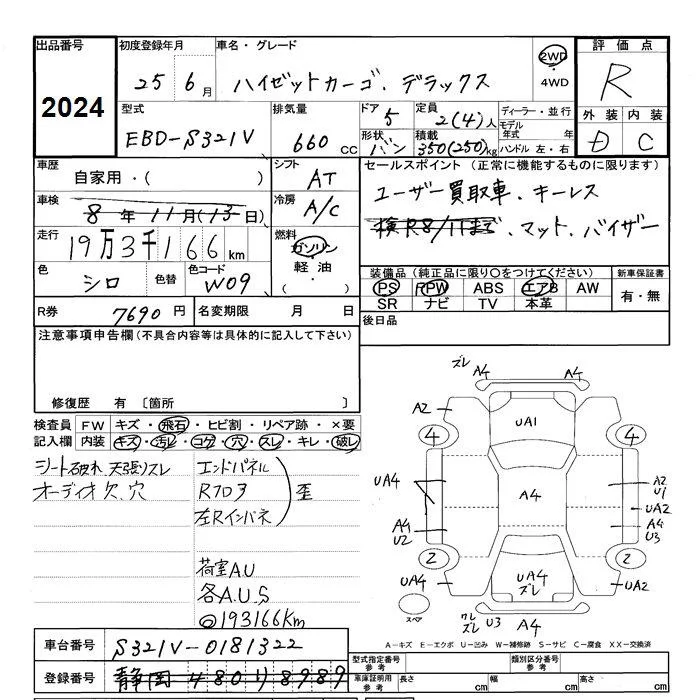 出品番号
2024
初度登録年月
25年 6月
車名・グレード
ハイゼットカーゴ・デラックス
2WD・4WD
評価点
R
外装 内装
D C
型式
EBD-S321V
排気量
660 cc
ドア
5
定員
2(4)人
形状
バン
積載
350(250)kg
ディーラー・並行
モデル年式 年式
ハンドル 左・右
車歴
自家用・( )
シフト
AT
セールスポイント (正常に機能するものに限ります)
ユーザー買取車・キーレス
検R8/11まで・マット・バイザー
車検
8年11月(13日)
冷房
A/C
走行
19万3千166km
燃料
ガソリン
軽油・
( )
色
シロ
色替
色コード
W09
装備品 (純正品に限り○をつけてください)
PS PW ABS エアB AW
SR ナビ TV 本革
新車保証書
有・無
R券
7690円
名変期限 月 日
後日品
注意事項申告欄(不具合内容等は具体的に記入して下さい)
修復歴 有〔箇所 〕
検査員記入欄
FW キズ・飛石・ヒビ割・リペア跡・×要
内装 キズ・汚レ・コゲ・穴・スレ・キレ・破レ
シート破れ 天張りズレ
オーディオ欠、穴
エンドパネル
Rフロア
左Rインパネ
歪
荷室AU
各A.U.S
@193166Km
ズレ A4 A4
A2
UA1
4 4
UA4
A4
A2
U1
UA2
A4
U2
A4
U3
2 2
UA4
UA4
ズレ
UA2
スペア
ワレ
ズレ U3 A4
A-キズ E-エクボ U-凹み W-補修跡 S-サビ C-腐食 XX-交換済
車台番号
S321V-0181322
登録番号
静岡 480り8989
型式指定番号
参考
類別区分番号
参考
車庫証明用
参考
長さ cm 幅 cm 高さ cm